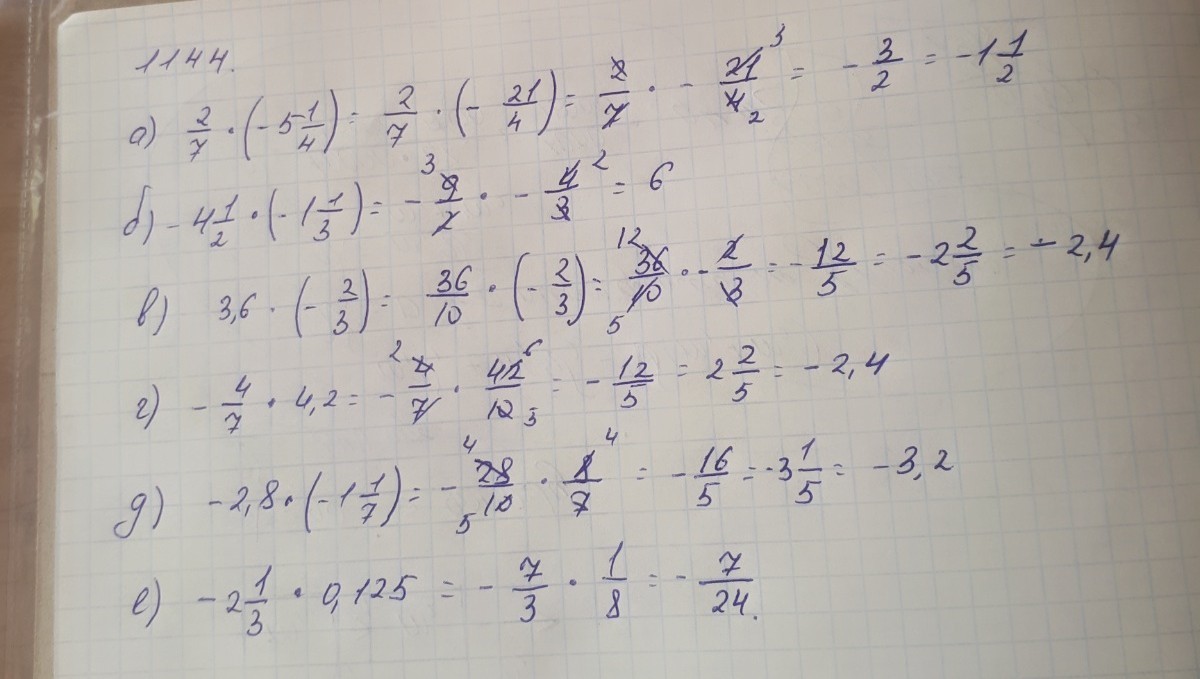 1144.
а) 2/7 · (-5 1/4) = 2/7 · (- 21/4) = 2/7 · - 21/4 3 2 = - 3/2 = -1 1/2
б) -4 1/2 · (-1 1/3) = - 3 9/2 · - 4/3 2 = 6
в) 3,6 · (- 2/3) = 36/10 · (- 2/3) = 12 36/10 5 · - 2/3 = - 12/5 = -2 2/5 = -2,4
г) - 4/7 · 4,2 = - 2 4/7 · 42/10 6 5 = - 12/5 = 2 2/5 = -2,4
д) -2,8 · (-1 1/7) = - 4 28/10 5 · 8/7 4 = - 16/5 = -3 1/5 = -3,2
е) -2 1/3 · 0,125 = - 7/3 · 1/8 = - 7/24.